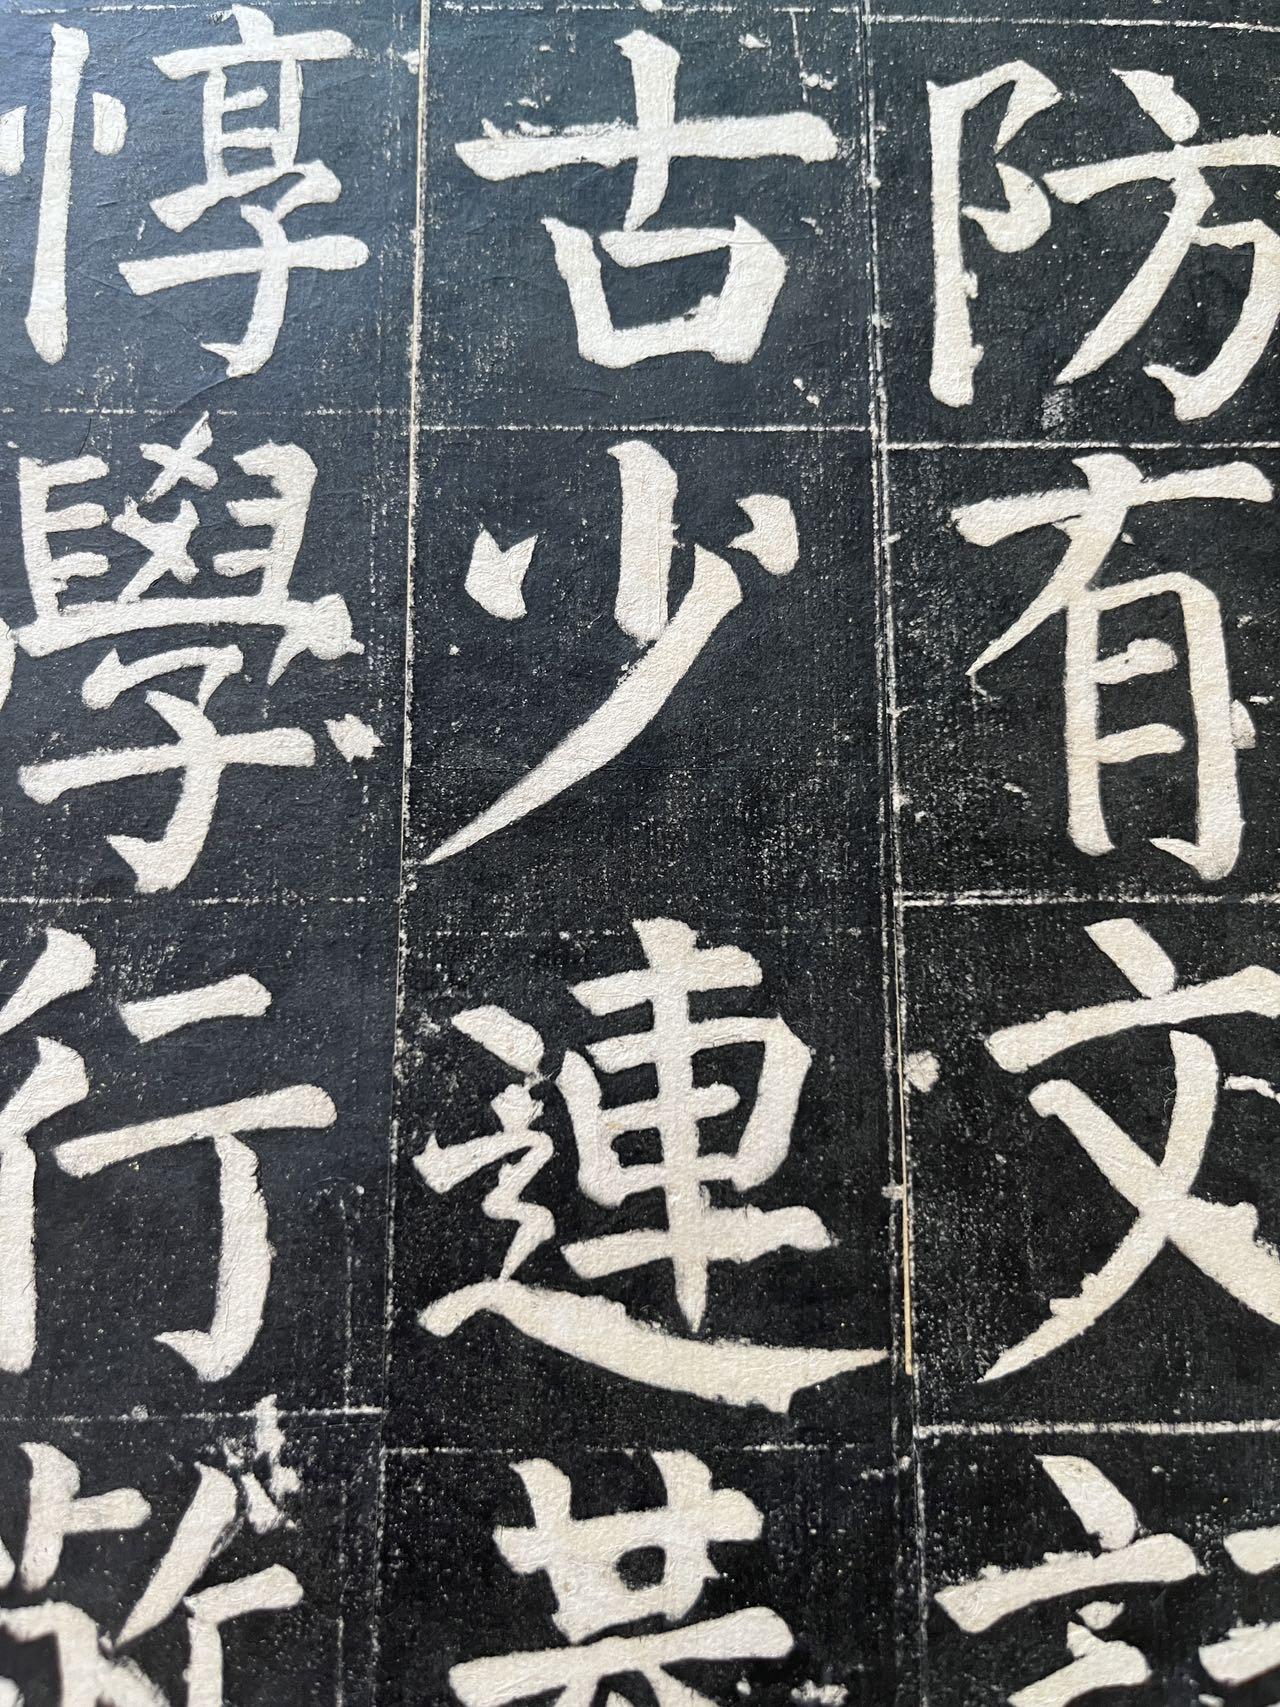 防有文
古少連
惇學行